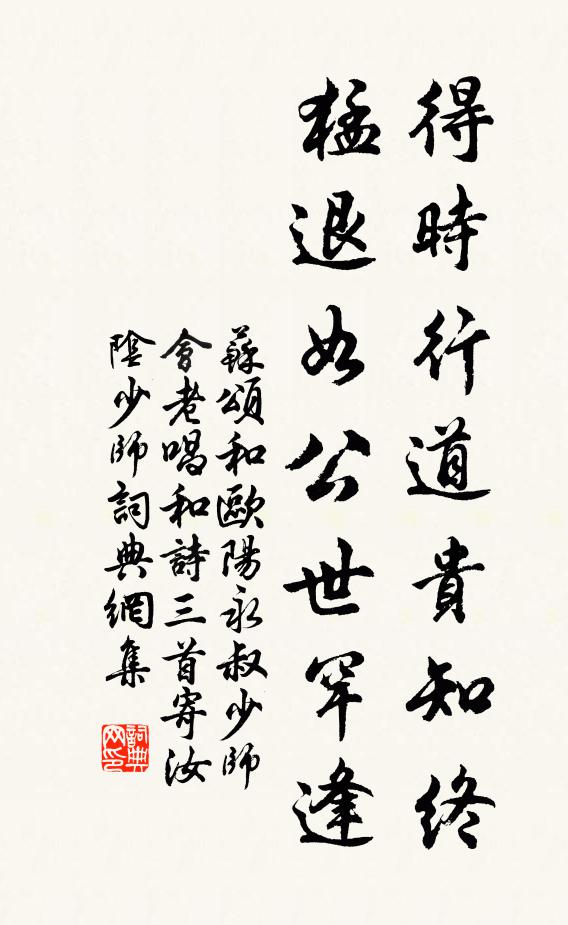 得時行道貴知終
猛退如公世罕逢
蘇頌和歐陽永叔少師
會老唱和詩三首寄汝
陰少師詞典網集
詞典
网印